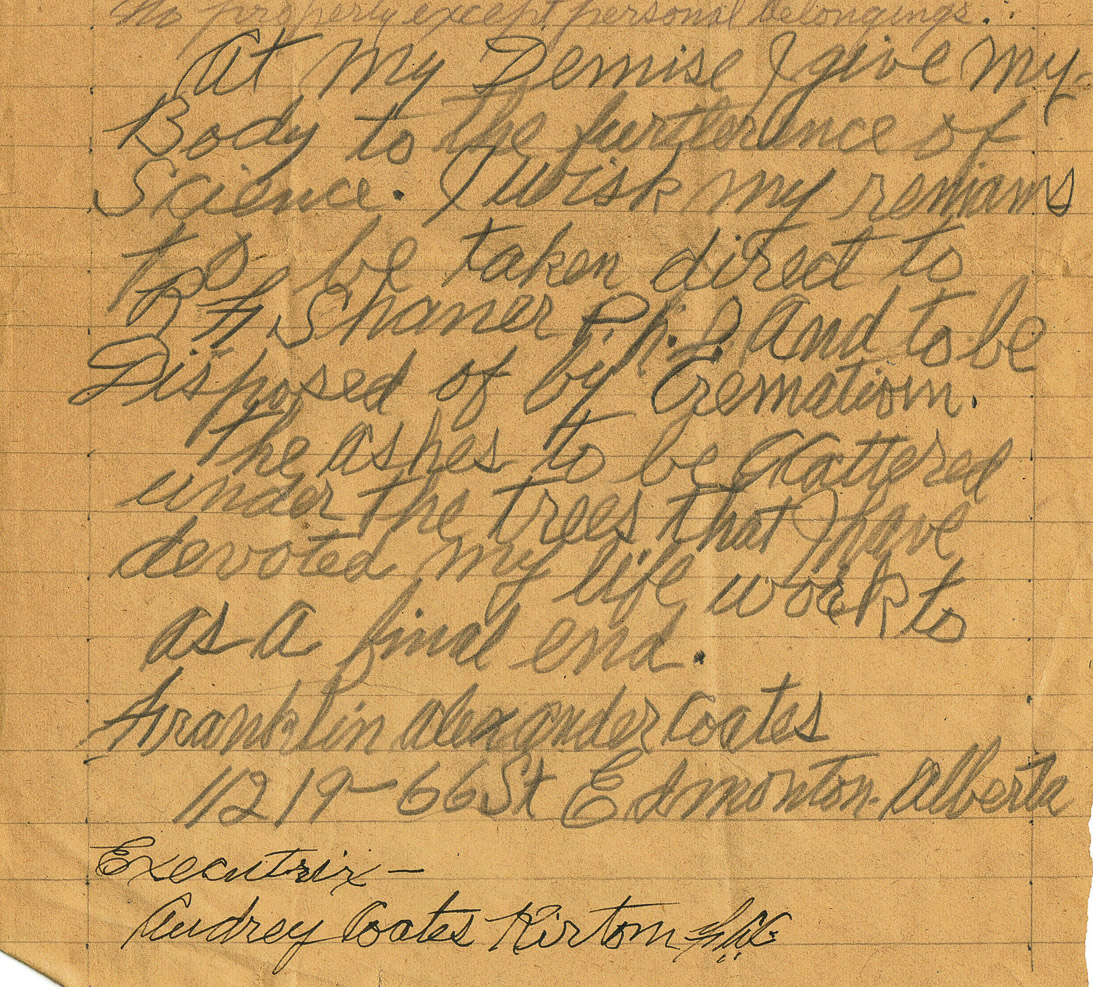 No property except personal belongings.
At my Demise I give my
Body to the furtherence of
Science. I wish my remains
to be taken direct to
R F Shaner P.h.D And to be
Disposed of by Crematiom.
The ashes to be scattered
under the trees that I have
devoted my life work to
as a final end.
Franklin alexander Coates
11219-66 St Edmonton. Alberta
Executrix-
Audrey Coates Kirtom